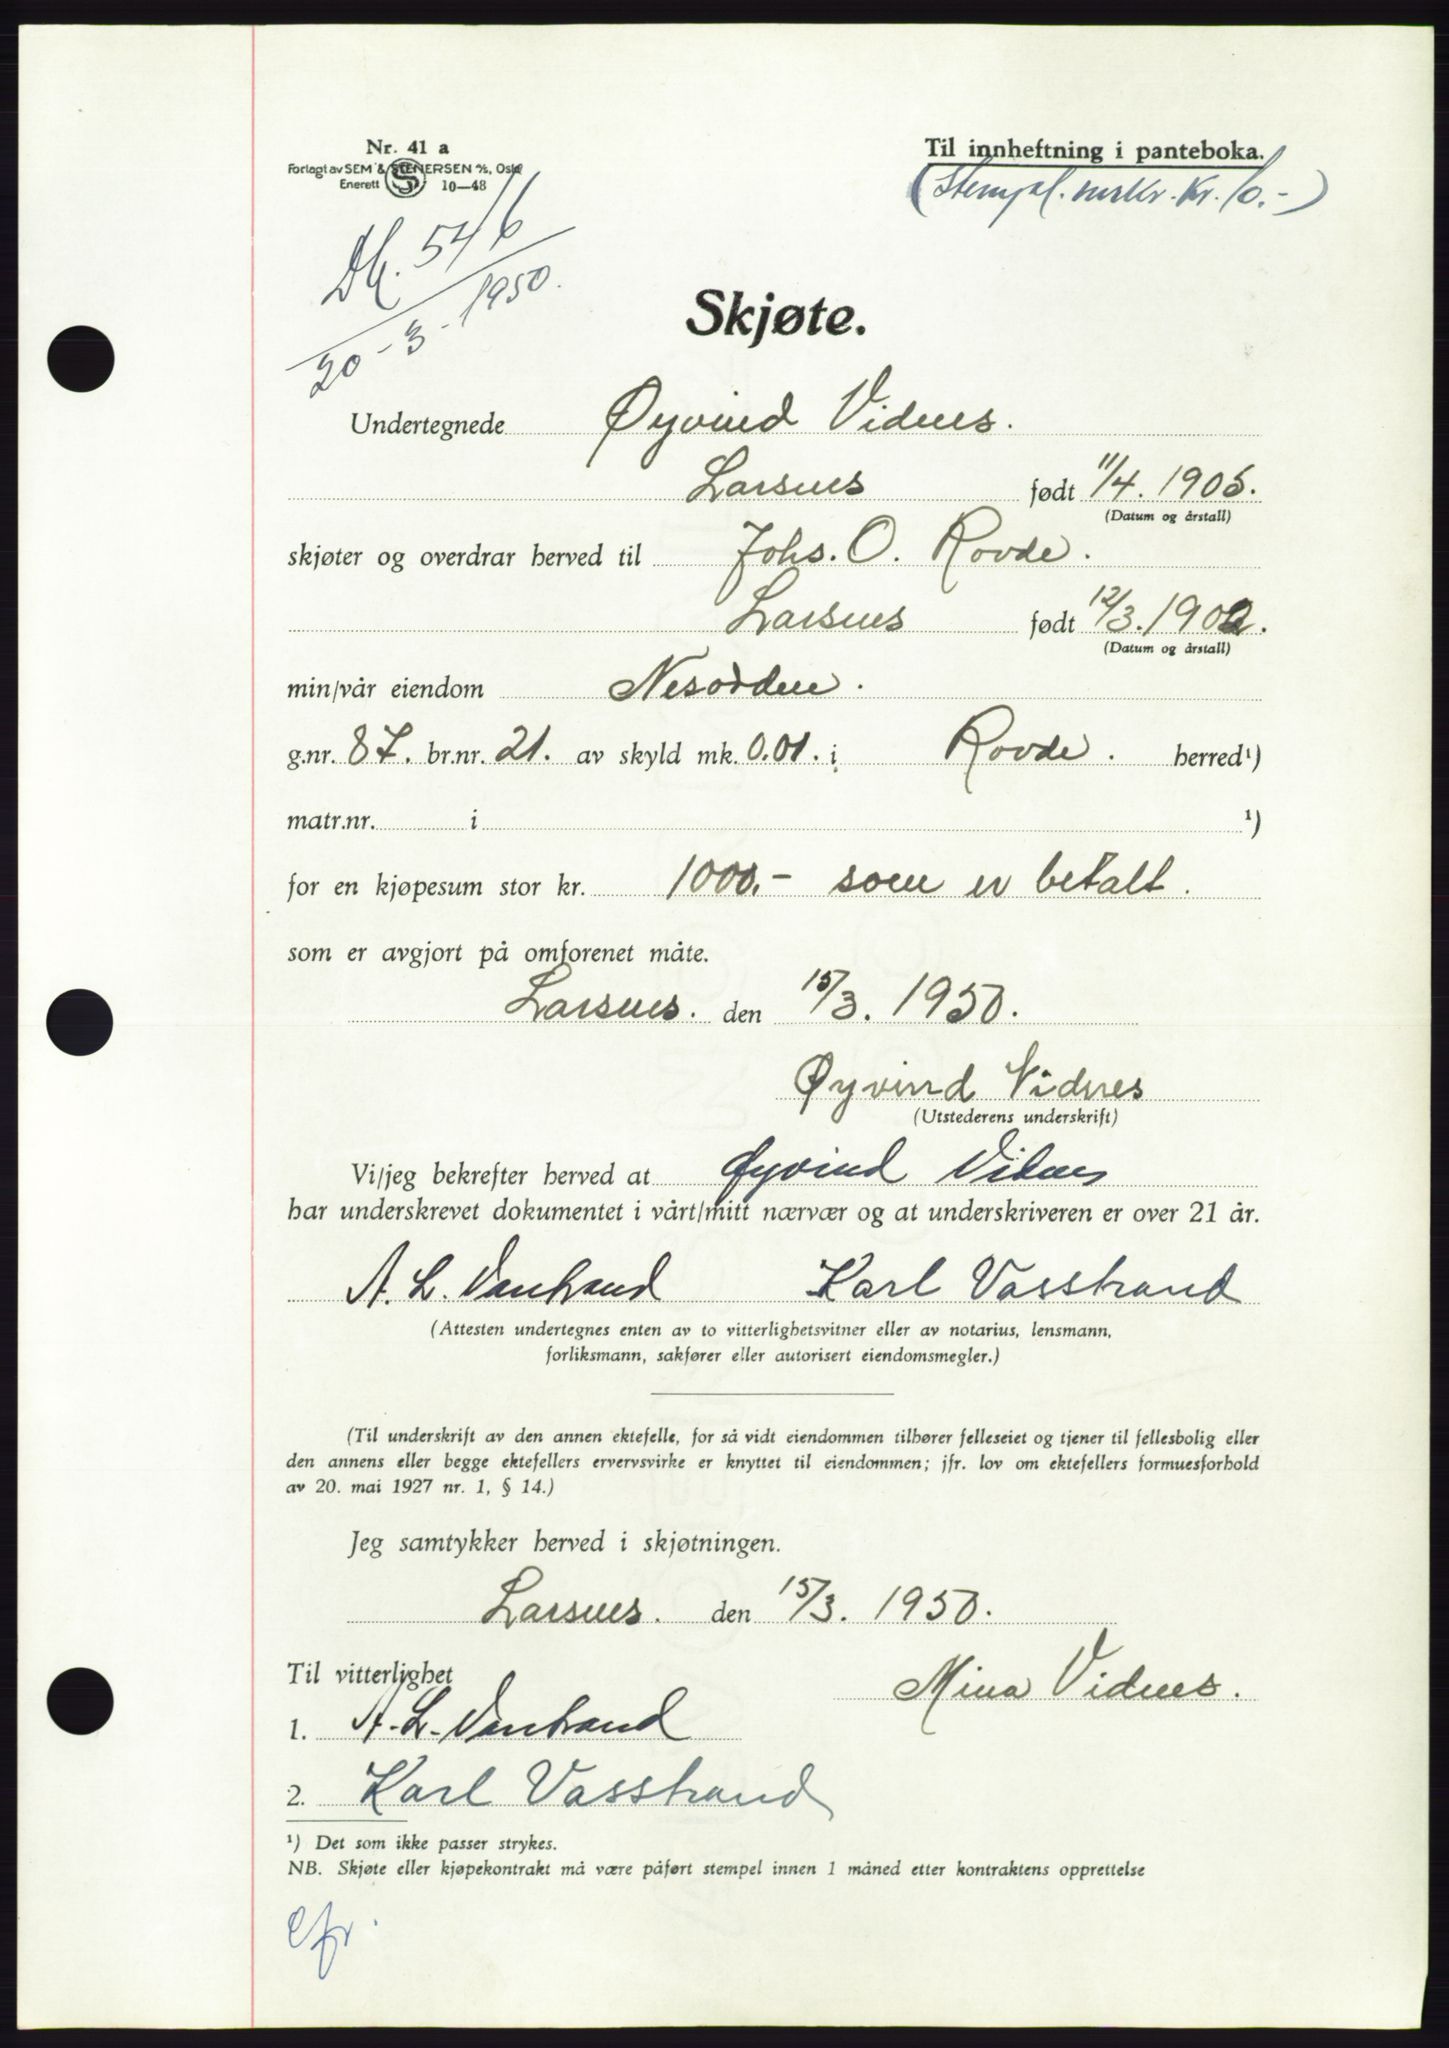 Nr. 41 a
Forlagt av SEM & STENERSEN A/S, Oslo
Enerett S 10—48
Til innheftning i panteboka.
(Stempel.merkr. kr. 10.-)
Db. 546
20-3-1950.
Skjøte.
Undertegnede Øyvind Vidnes.
Larsnes født 11/4. 1905.
(Datum og årstall)
skjøter og overdrar herved til Johs. O. Rovde.
Larsnes født 12/3. 1902.
(Datum og årstall)
min/vår eiendom Nesodden.
g.nr. 87. br.nr. 21. av skyld mk. 0.01. i Rovde. herred¹)
matr.nr. i ¹)
for en kjøpesum stor kr. 1000.- som er betalt.
som er avgjort på omforenet måte.
Larsnes. den 15/3. 1950.
Øyvind Vidnes
(Utstederens underskrift)
Vi/jeg bekrefter herved at Øyvind Vidnes
har underskrevet dokumentet i vårt/mitt nærvær og at underskriveren er over 21 år.
A. L. Vasstrand Karl Vasstrand
(Attesten undertegnes enten av to vitterlighetsvitner eller av notarius, lensmann,
forliksmann, sakfører eller autorisert eiendomsmegler.)
(Til underskrift av den annen ektefelle, for så vidt eiendommen tilhører felleseiet og tjener til fellesbolig eller
den annens eller begge ektefellers ervervsvirke er knyttet til eiendommen; jfr. lov om ektefellers formuesforhold
av 20. mai 1927 nr. 1, § 14.)
Jeg samtykker herved i skjøtningen.
Larsnes. den 15/3. 1950.
Til vitterlighet
Mina Vidnes.
1. A. L. Vasstrand
2. Karl Vasstrand
¹) Det som ikke passer strykes.
NB. Skjøte eller kjøpekontrakt må være påført stempel innen 1 måned etter kontraktens opprettelse